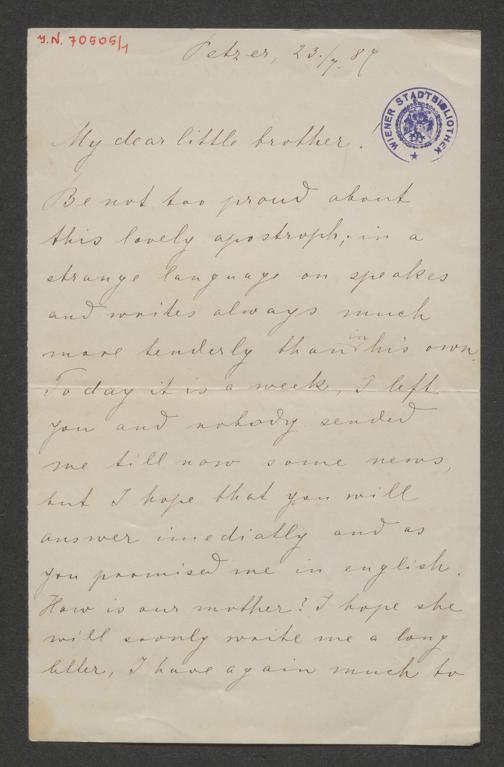 J.N. 70505/1
Petzer, 23./7. 87
WIENER STADTBIBLIOTHEK
My dear little brother!
Be not too proud about
this lovely apostroph; in a
strange language on speakes
and writes always much
more tenderly than in his own.
Today it is a week, I left
you and nobody sended
me till now some news,
but I hope that you will
answer imediatly and as
you promised me in english.
How is our mother? I hope she
will soonly write me a long
letter, I have again much to